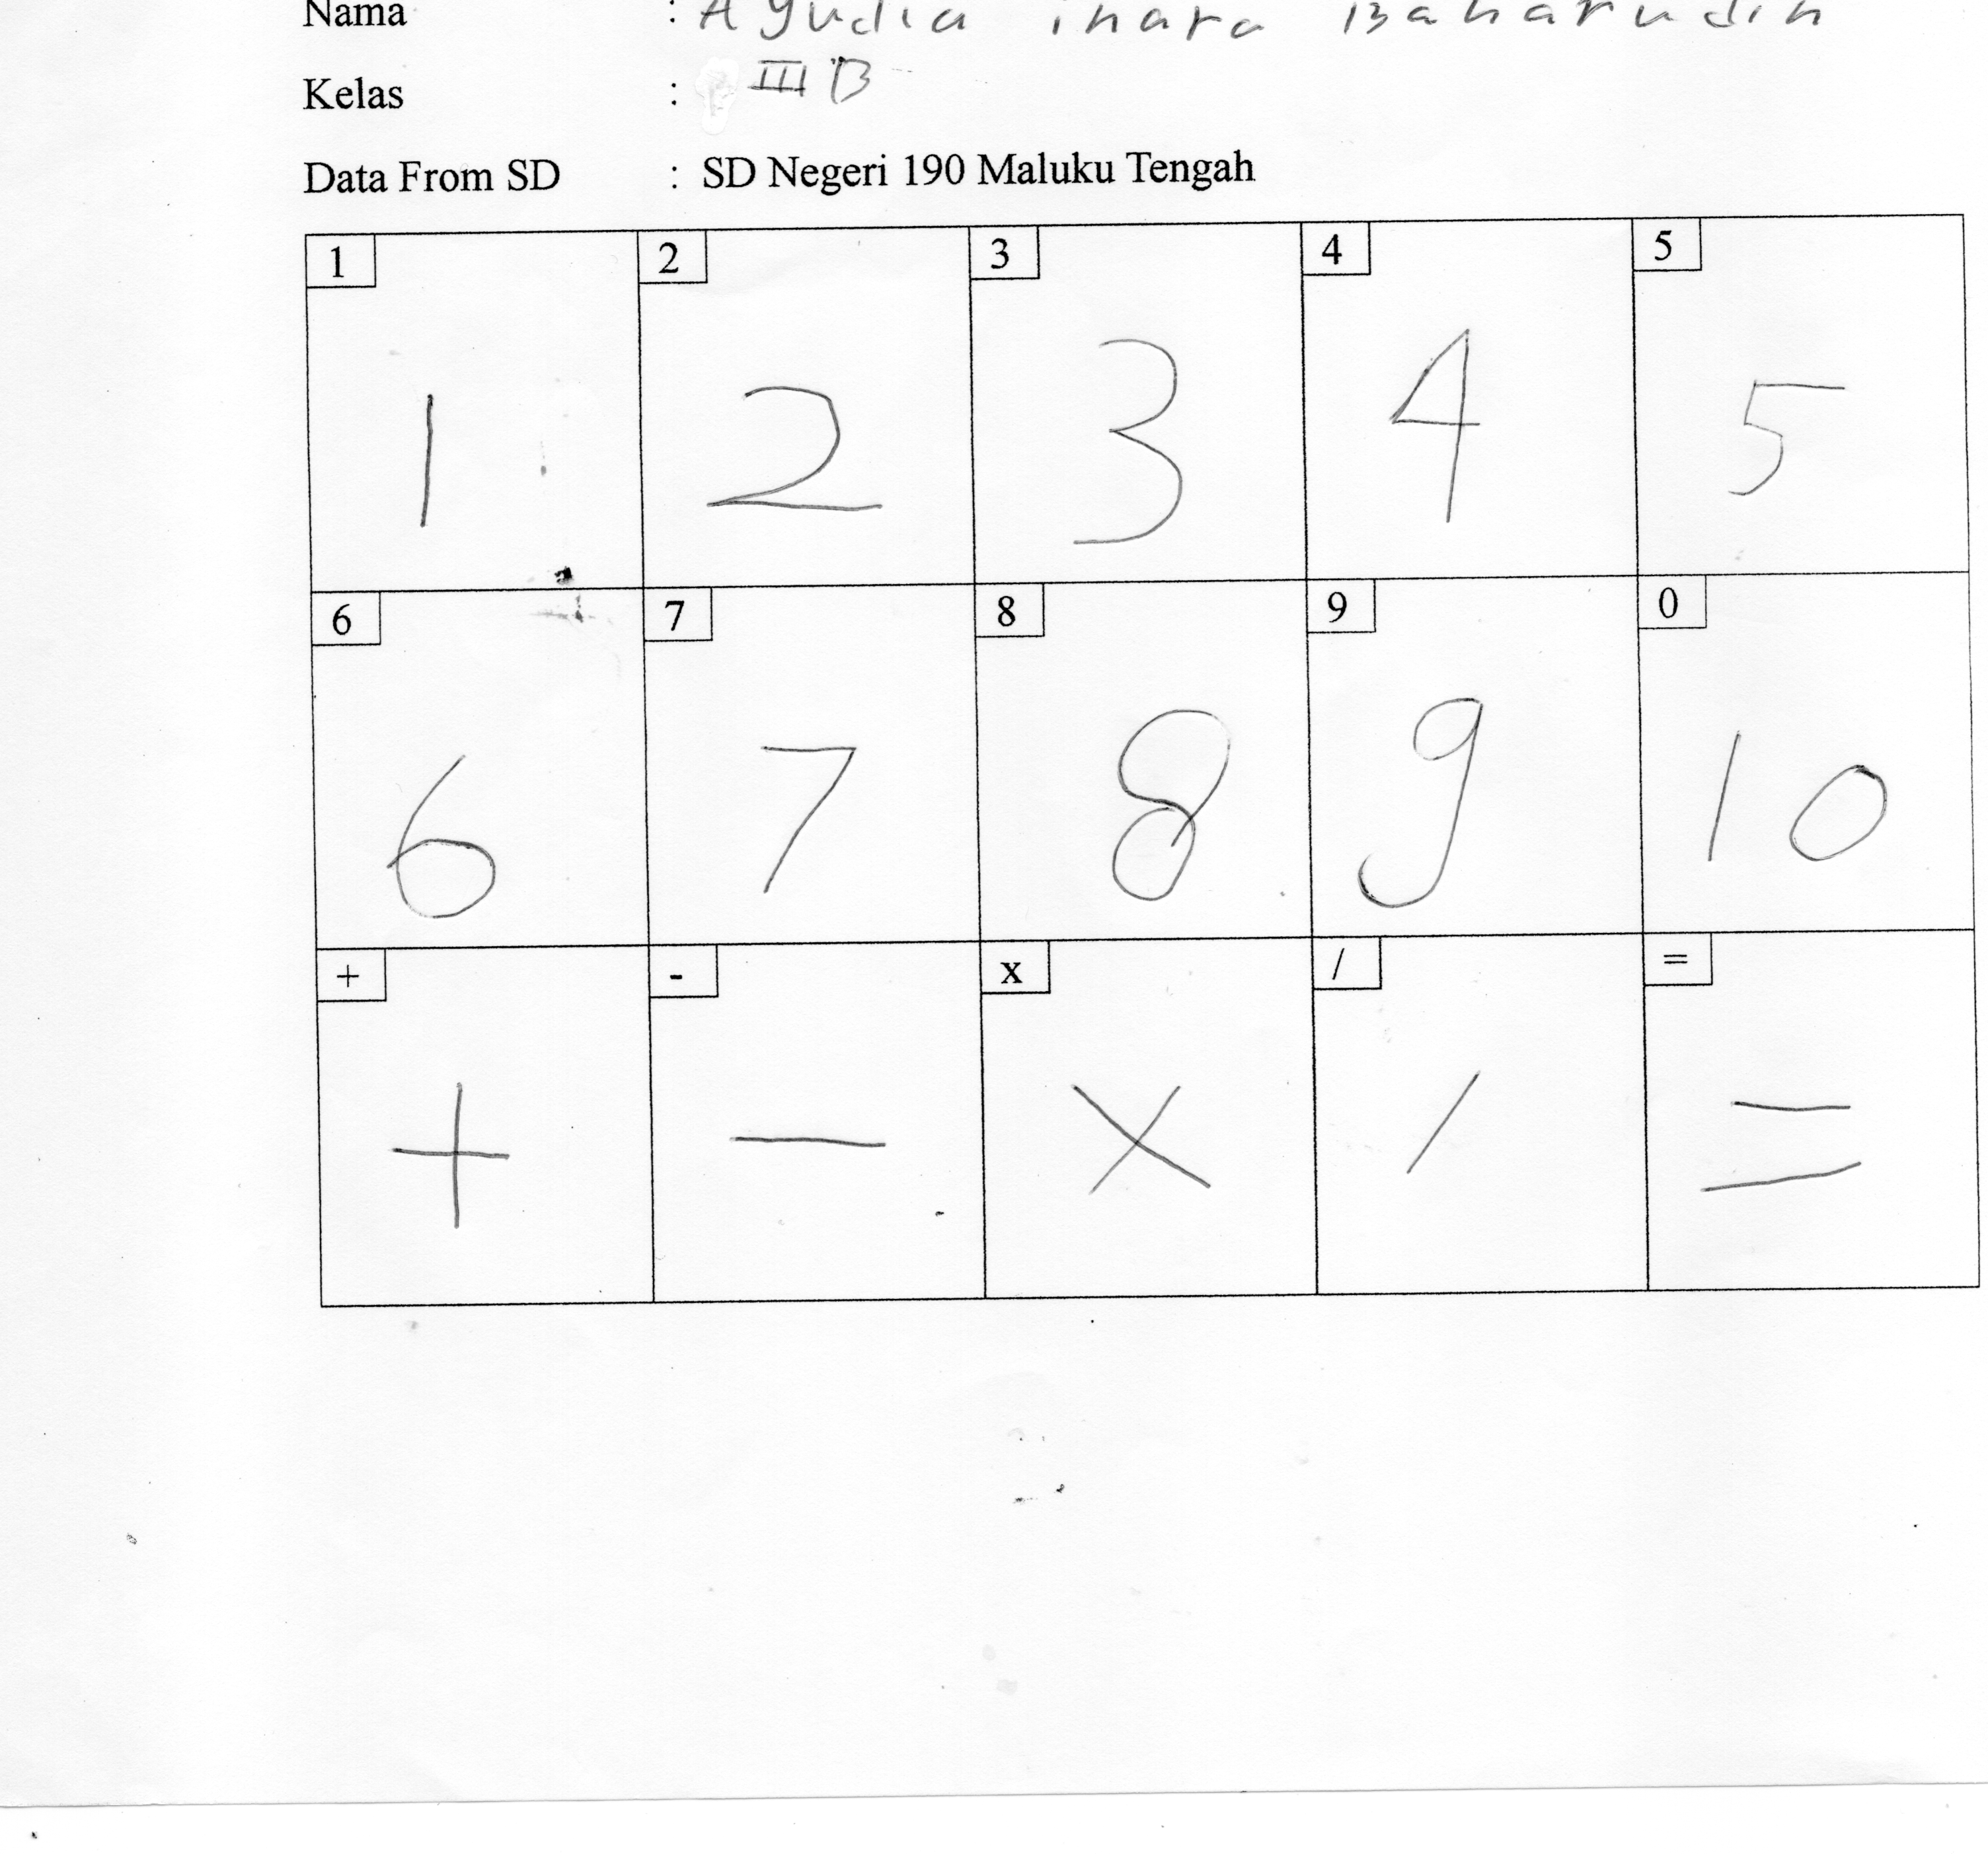 Nama : Ayudia inara Baharudin
Kelas : III B
Data From SD : SD Negeri 190 Maluku Tengah
1 2 3 4 5
1 2 3 4 5
6 7 8 9 0
6 7 8 9 10
+ - x / =
+ - x / =